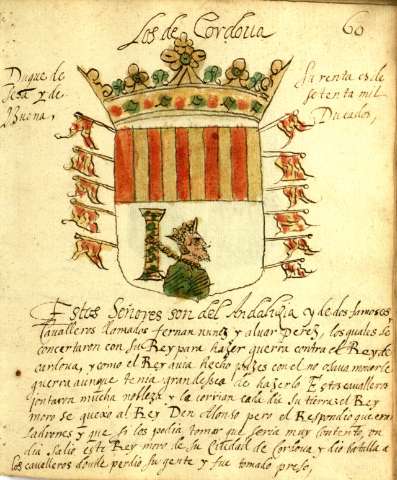 Los de Cordoua
60
Duque de
Sesa y de
Su renta es de
setenta mil
Ducados,
Estos Señores son del Andaluzia y de dos famosos,
Cavalleros llamados fernan nunez y aluar Perez, los quales se
concertaron con su Rey para hazer guerra contra el Rey de
cordoua, y como el Rey auia hecho pazes con el no osaua mouerle
guerra aunque tenia grandesea de hazerlo Estos cavalleros
jontaron mucha nobleza y la corrian cada dia su tierra el Rey
moro se quexo al Rey Don Alonso pero el Respondio que eran
ladrones y que si los podia tomar que seria muy contento, vn
dia salio este Rey moro de su Ciudad de Cordoua y dio batalla a
los cavalleros donde perdio su gente y fue tomado preso,